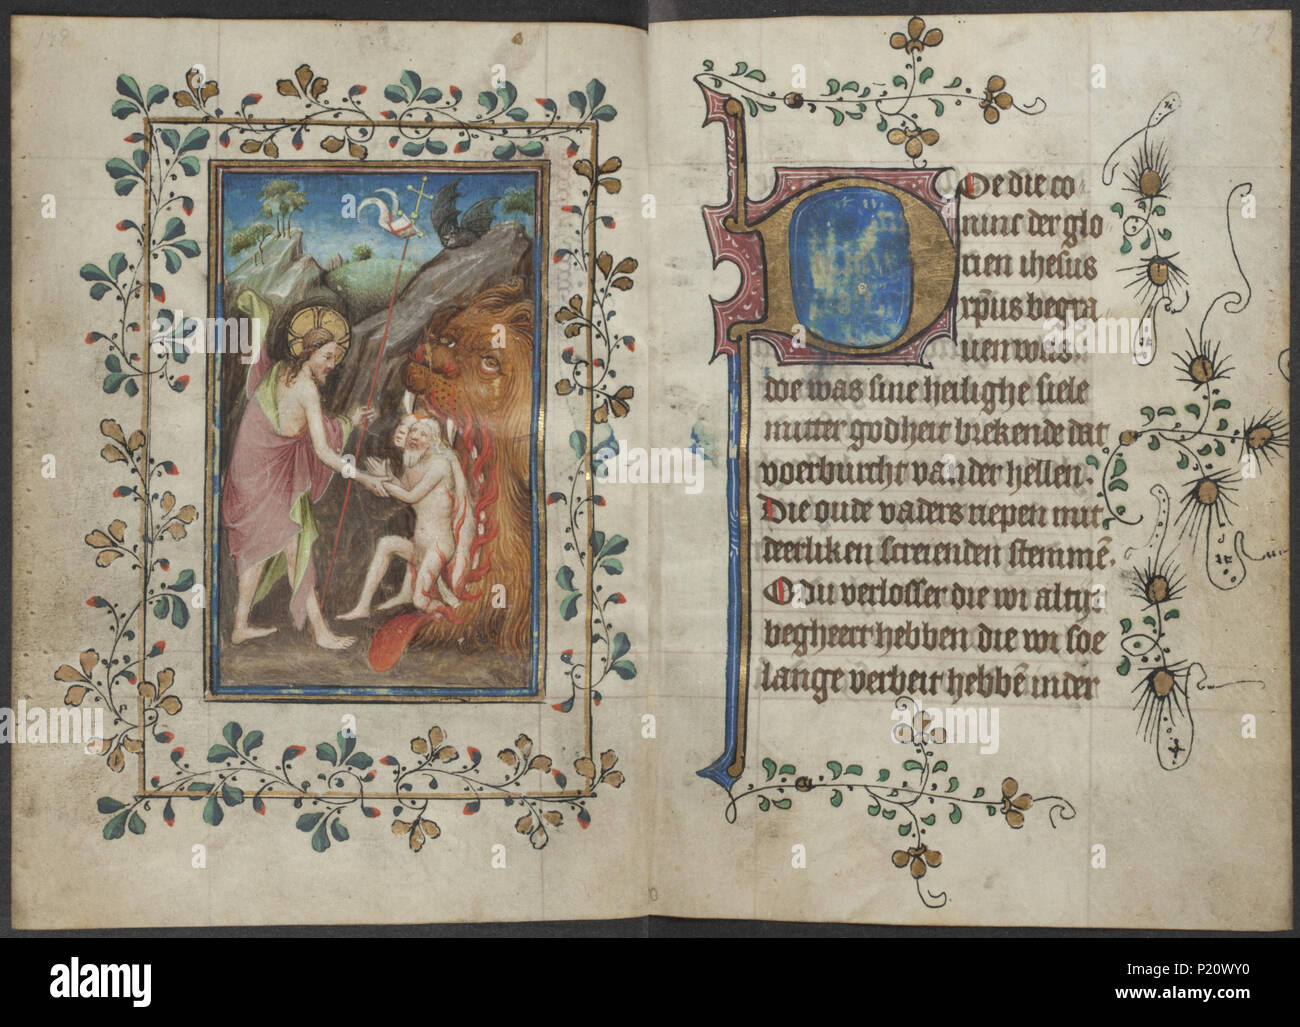 Doe die co
nunc der glo
rien ihesus
xp̄us begra
uen was.
doe was sine heilighe siele
mitter godheit brekende dat
voerburcht van der hellen.
Die oude vaders riepen mit
deerliken screienden stemmē.
O du verlosser die wi altijt
begheert hebben die wi soe
lange verbeit hebbē in der
alamy
Image ID: P20WY0
www.alamy.com